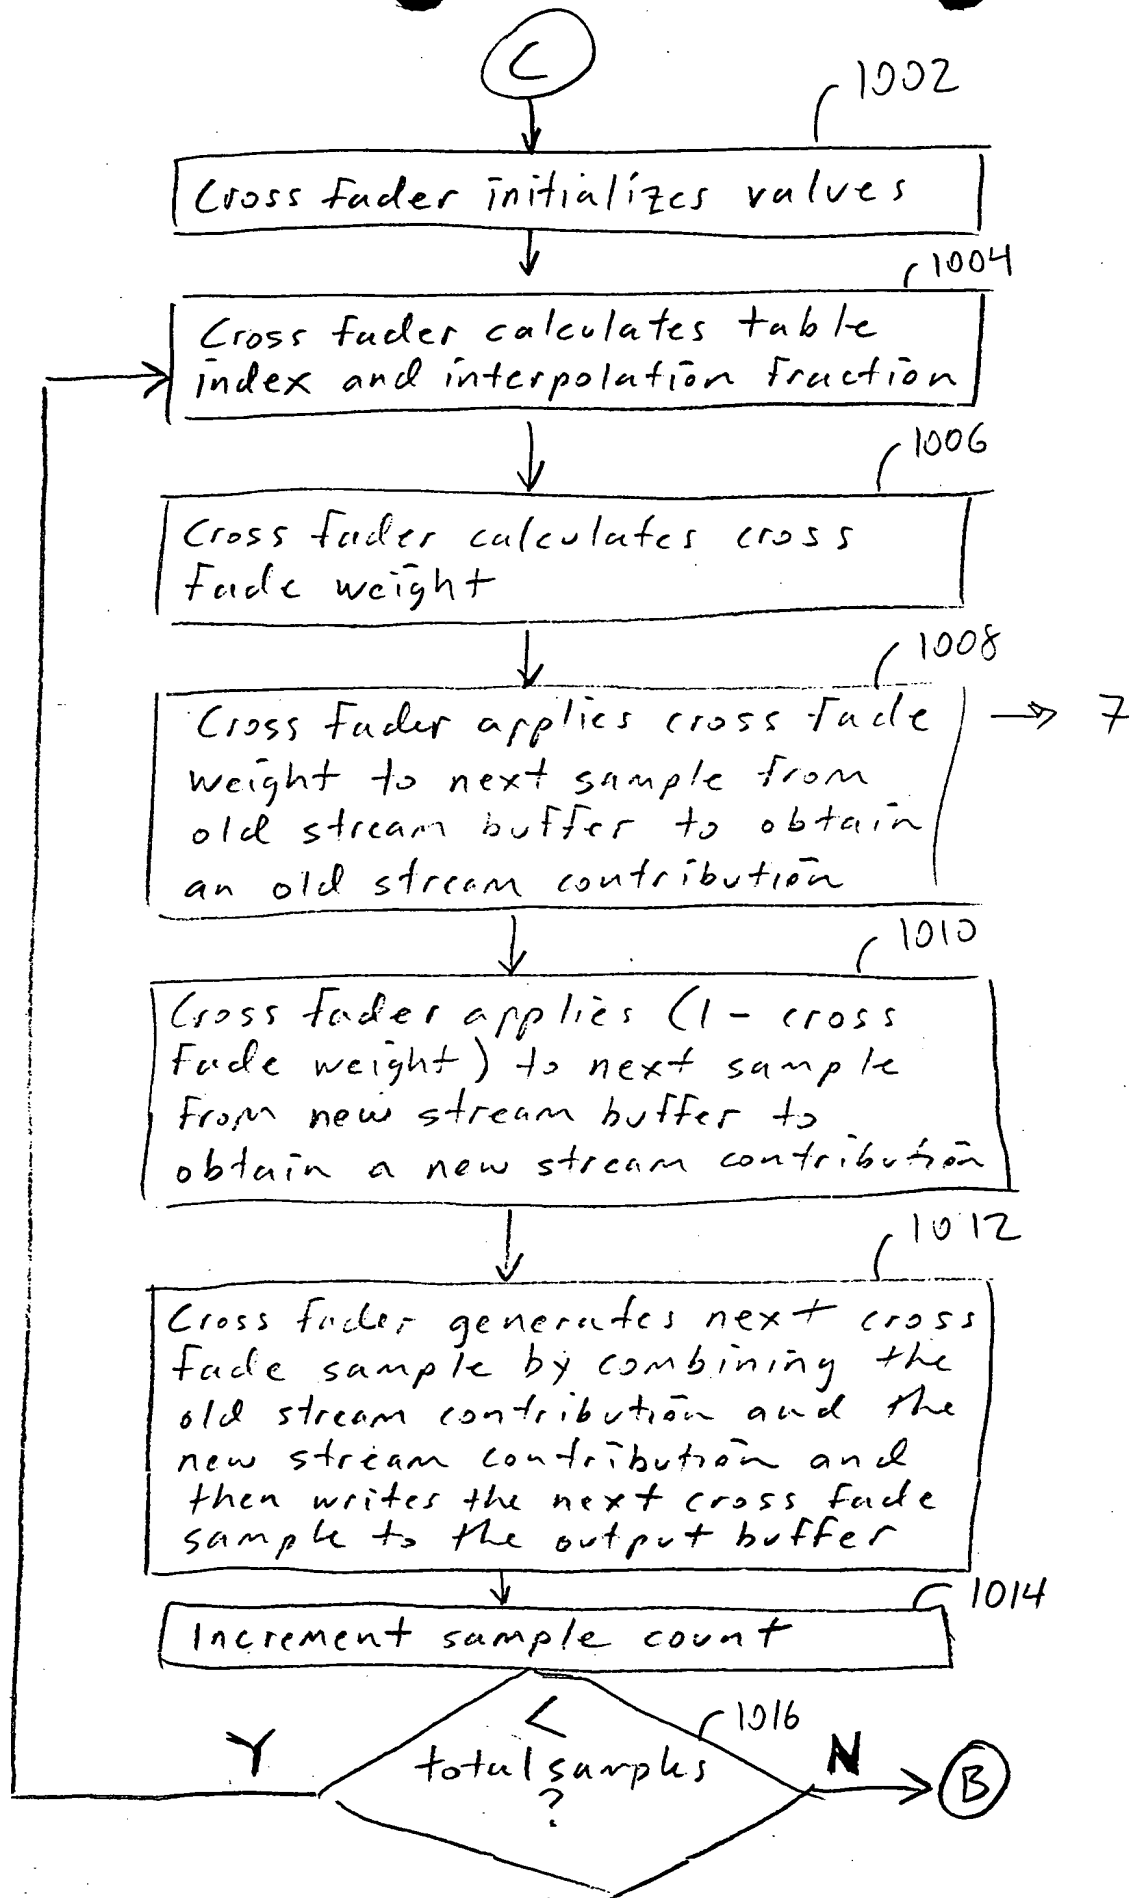 C
1002
Cross fader initializes values
1004
Cross fader calculates table
index and interpolation fraction
1006
Cross fader calculates cross
fade weight
1008
Cross fader applies cross fade
weight to next sample from
old stream buffer to obtain
an old stream contribution
→ 7
1010
Cross fader applies (1 - cross
fade weight) to next sample
from new stream buffer to
obtain a new stream contribution
1012
Cross fader generates next cross
fade sample by combining the
old stream contribution and the
new stream contribution and
then writes the next cross fade
sample to the output buffer
1014
Increment sample count
1016
<
total samples
?
Y
N
B